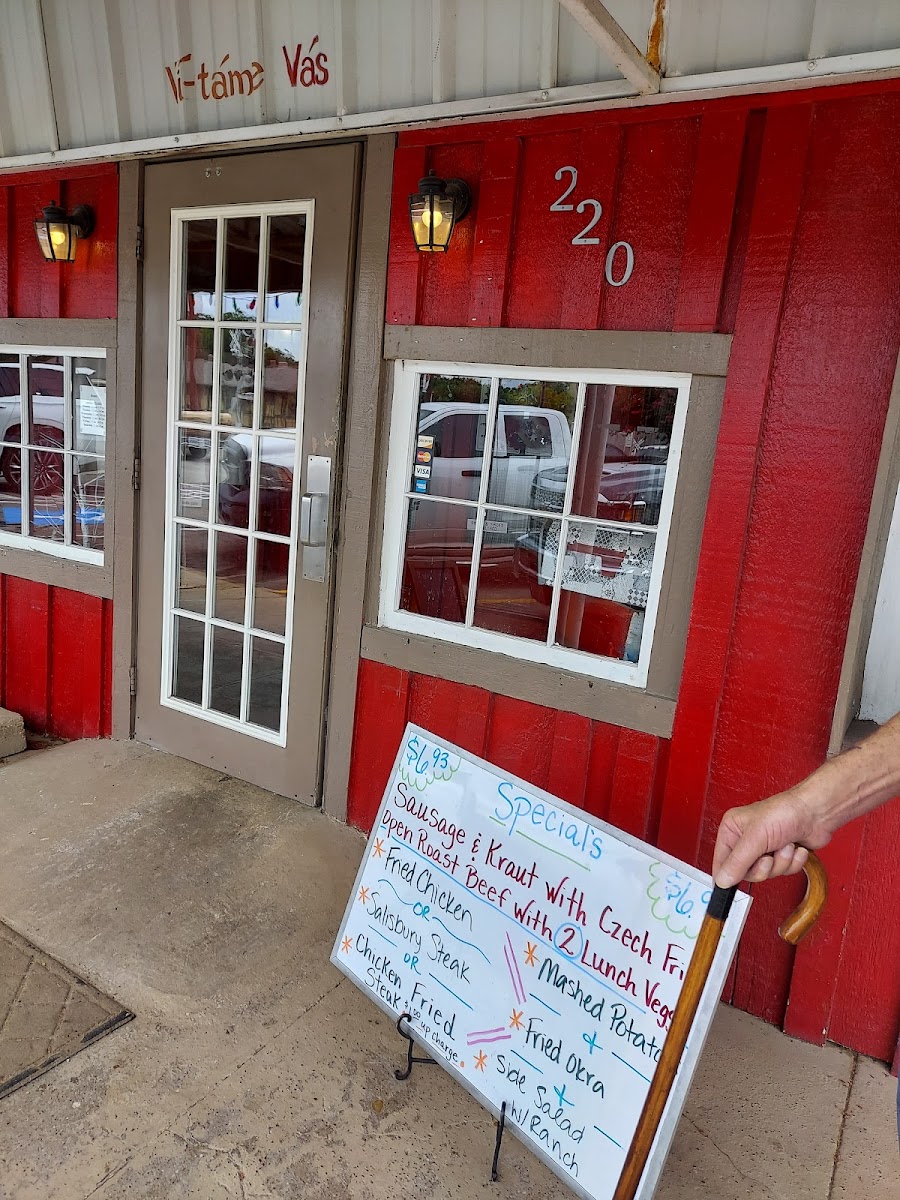 Ví-táme Vás
220
DISCOVER
VISA
$6.93
Specials
$6.9
Sausage & Kraut with Czech Fri
Open Roast Beef with 2 Lunch Vegg
* Fried Chicken
OR
* Salisbury Steak
OR
* Chicken Fried
Steak $1.00 up charge.
* Mashed Potato
&
* Fried Okra
&
* Side Salad
w/ Ranch